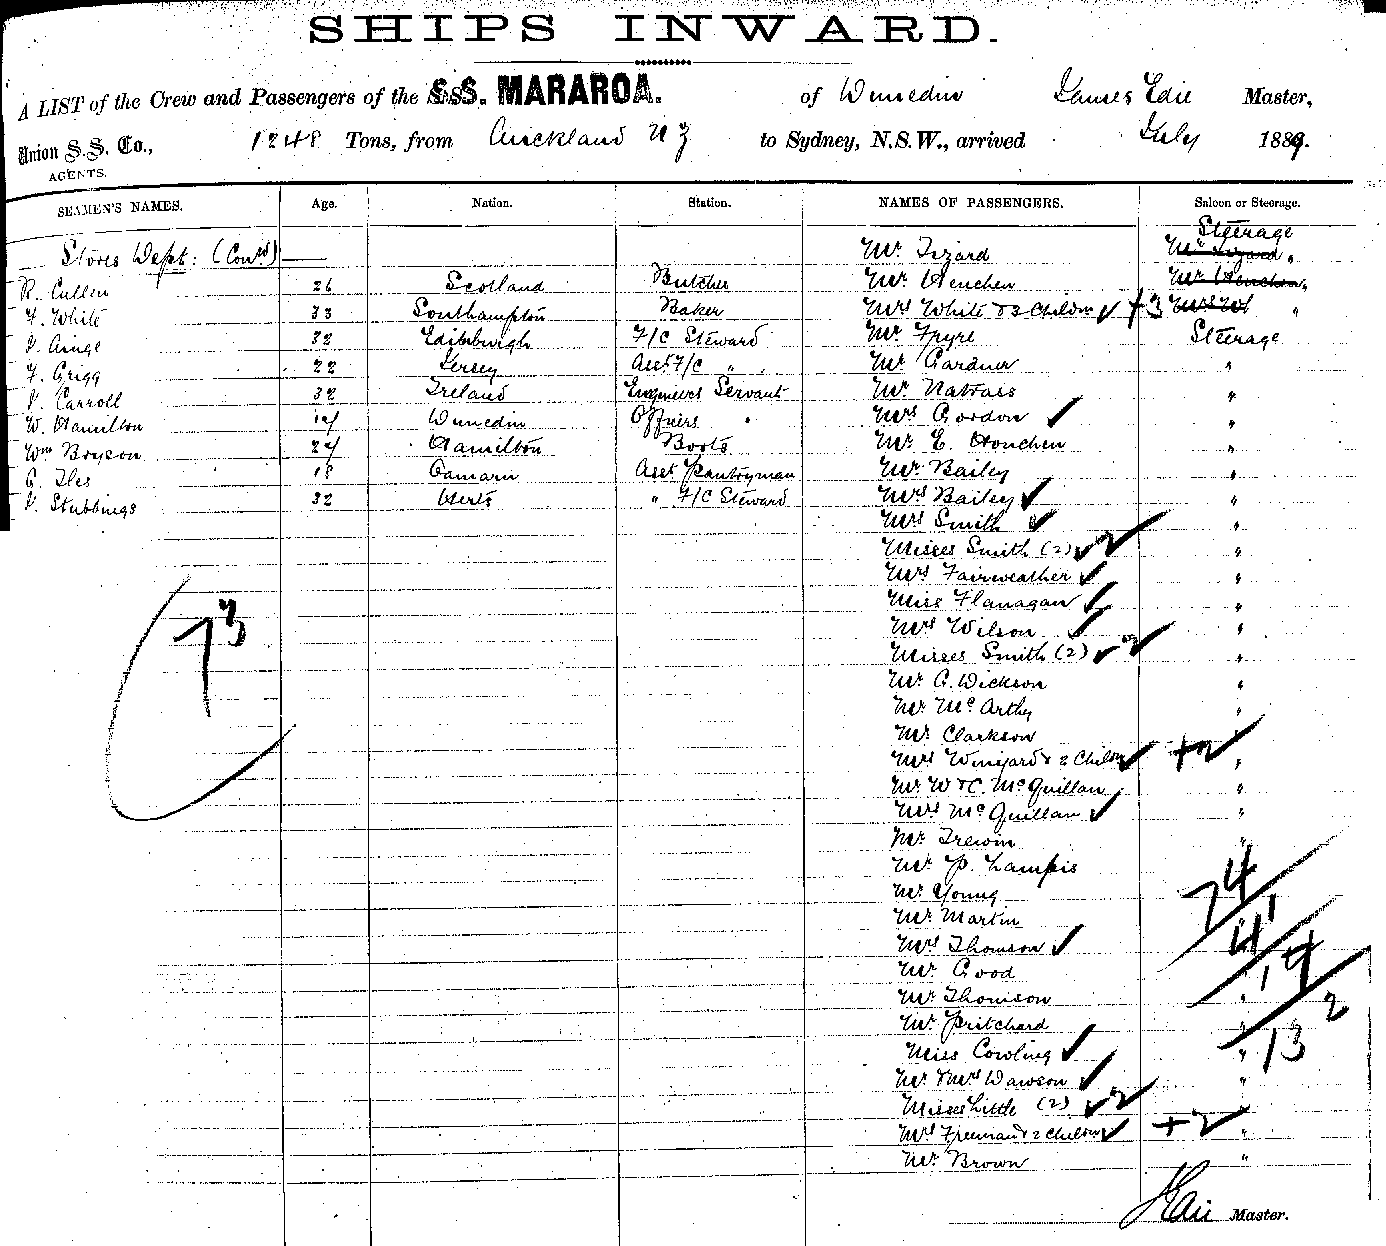 SHIPS INWARD.
A LIST of the Crew and Passengers of the S.S. MARAROA. of Dunedin James Edie Master,
Union S.S. Co., AGENTS. 1248 Tons, from Auckland NZ to Sydney, N.S.W., arrived July 1889.
SEAMEN'S NAMES. Age. Nation. Station. NAMES OF PASSENGERS. Saloon or Steerage.
Stores Dept: (Contd) Mr Izard Steerage
R. Cullen 26 Scotland Butcher Mr Henchen Mr Izard "
F. White 33 Southampton Baker Mrs White & 3 Children +3 "
J. Ainge 32 Edinburgh F/C Steward Mr Fryre Steerage
F. Grigg 22 Jersey Asst F/C " Mr Gardner "
J. Carroll 32 Ireland Engineers Servant Mr Nattrass "
W. Hamilton 19 Dunedin Officers " Mrs Gordon "
Wm Boyson 24 Hamilton Boots Mr E. Honchen "
C. Iles 18 Oamaru Asst Pantryman Mr Bailey "
J. Stubbings 32 Herts " F/C Steward Mrs Bailey "
Mrs Smith "
Misses Smith (2) 2 "
Mrs Fairweather "
Miss Flanagan "
Mrs Wilson "
Misses Smith (2) 2 "
Mr C. Dickson "
Mr McArthy "
Mr Clarkson
Mrs Winyard & 2 Children +2 "
Mr W & C. McQuillan "
Mrs McQuillan "
Mr Trewin "
Mr P. Lampis
Mr Young
Mr Martin
Mrs Thomson
Mr Good
Mr Thomson "
Mr Pritchard "
Miss Cowling "
Mr & Mrs Dawson "
Misses Little (2) 2
Mrs Freeman & 2 Children +2 "
Mr Brown "
73
74
41
19
2
13
JEdie Master.